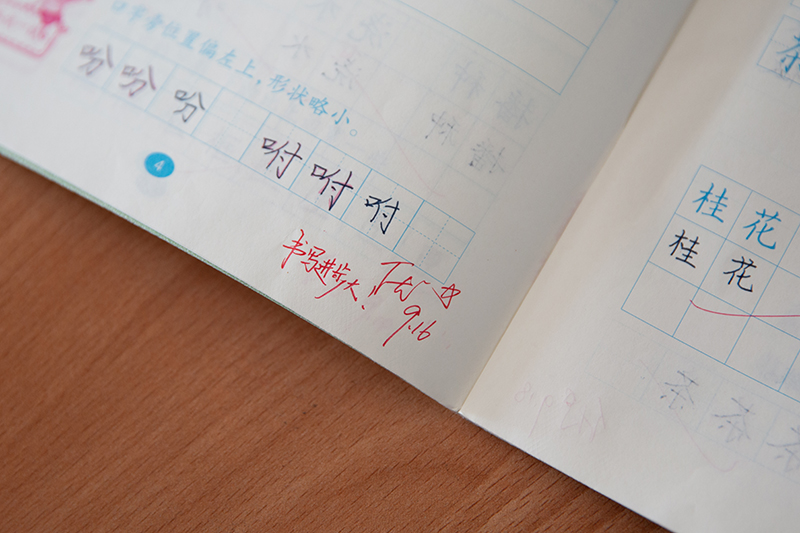 口字旁位置偏左上，形状略小。
吩 吩 吩
咐 咐 咐
4
书写进步大、
9.16
茶
桂 花
桂 花